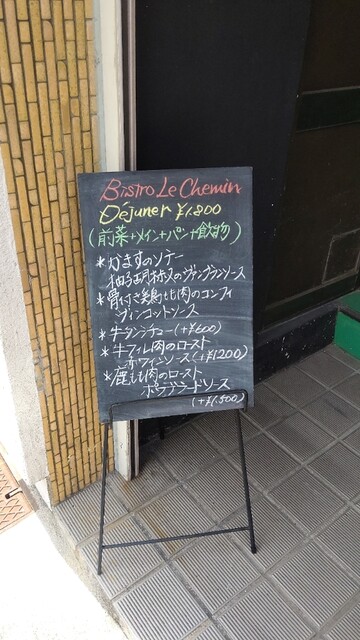 Bistro Le Chemin
Déjuner ¥1.800
(前菜+メイン+パン+飲物)
*かますのソテー
柚子胡椒のヴァンブランソース
*骨付き鶏もも肉のコンフィ
ヴィンコットソース
*牛タンシチュー(+¥600)
*牛フィレ肉のロースト
赤ワインソース(+¥1200)
*鹿もも肉のロースト
ポワブラードソース
(+¥1.500)